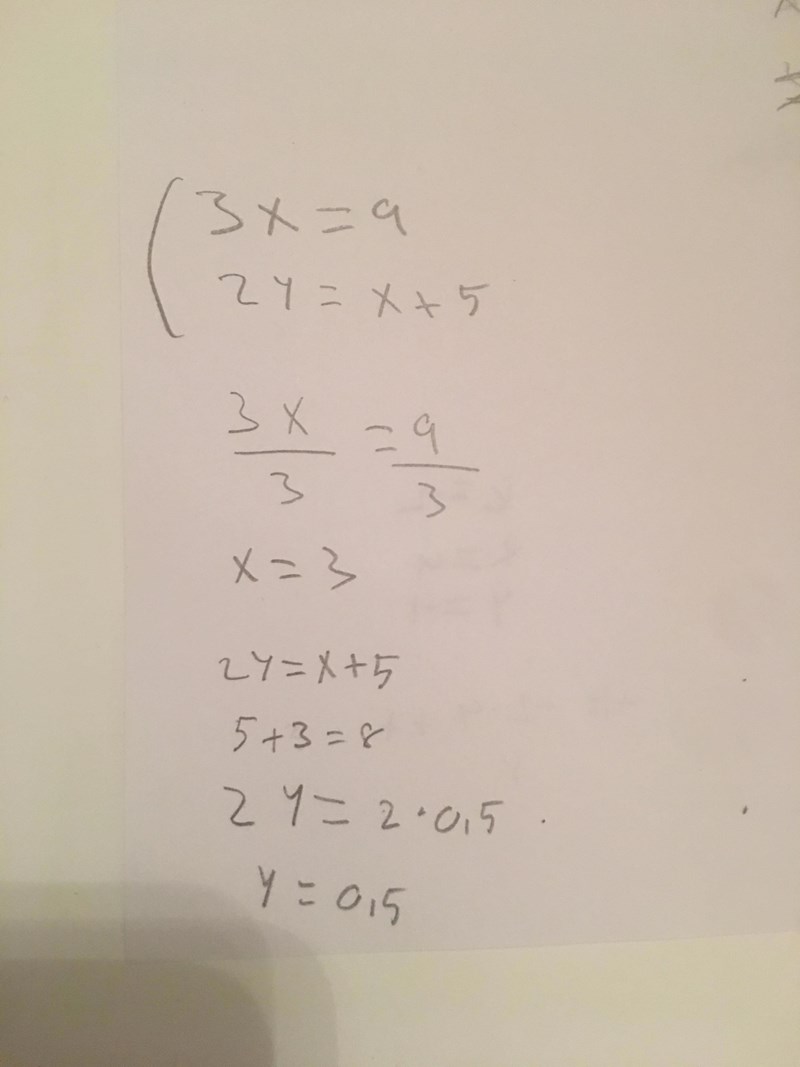 3x = 9
2y = x + 5
3x/3 = 9/3
x = 3
2y = x + 5
5 + 3 = 8
2y = 2 · 0,5
y = 0,5